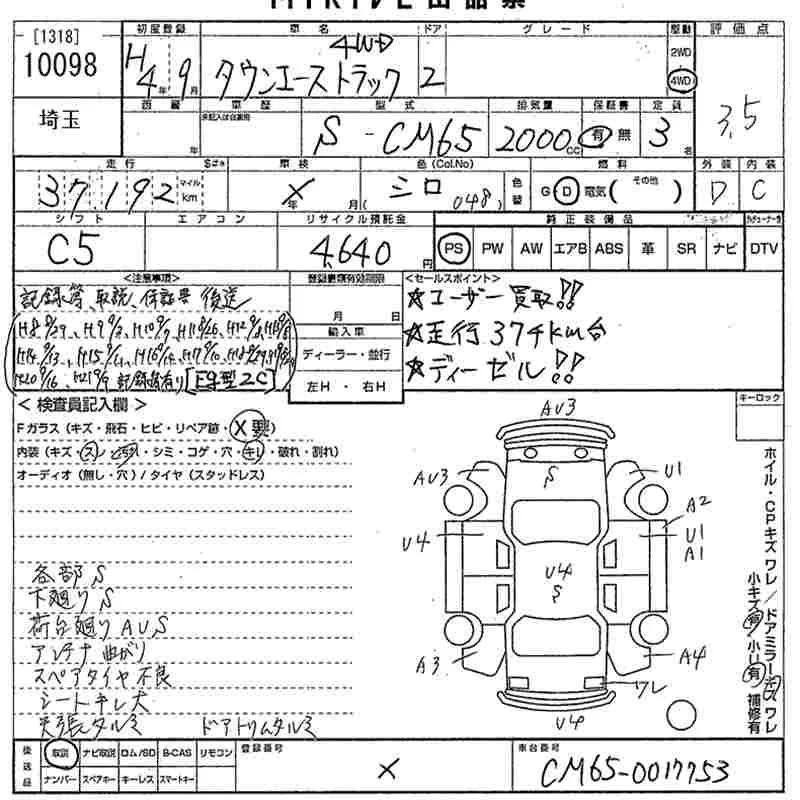 出品票
[1318]
10098
埼玉
初度登録 車名 ドア グレード 駆動 評価点
H4年9月 4WD タウンエーストラック 2 2WD 4WD 3.5
西暦 年 車歴 未記入は自家用 型式 排気量 保証書 定員
S-CM65 2000cc 有 無 3名
走行 車検 色(Col.No) 色替 燃料 外装 内装
37,192 マイル km X年 月 シロ (048) G・D 電気( その他 ) D C
シフト エアコン リサイクル預託金 純正装備品
C5 4,640円 PS PW AW エアB ABS 革 SR ナビ DTV
<注意事項> 登録書類有効期限 <セールスポイント>
記録簿、取説、保証書 後送
月 日
輸入車
ディーラー・並行
左H・右H
★ユーザー買取!!
★走行37千km台
★ディーゼル!!
記録簿有り[E型 2C]
キーロック
< 検査員記入欄 >
Fガラス (キズ・飛石・ヒビ・リペア跡・X要)
内装 (キズ・スレ・汚れ・シミ・コゲ・穴・キレ・破れ・割れ)
オーディオ (無し・穴) / タイヤ (スタッドレス)
各部S
下廻りS
荷台廻りAUS
アンテナ曲がり
スペアタイヤ不良
シートキレ大
天張タルミ ドアトリムタルミ
AU3
S
AU3 U1
A2
U4 U1
A1
U4
S
A3 A4
ワレ
U4
ホイル・CPキズワレ/ドアミラーキズワレ
小キズ有 小U有 補修有
後送品 取説 ナビ取説 ロム/SD B-CAS リモコン 登録番号 車台番号
ナンバー スペアキー キーレス スマートキー X CM65-0017753